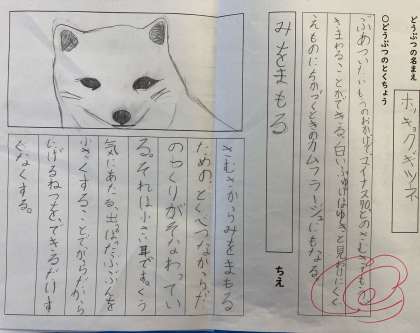 どうぶつの名まえ
ホッキョクギツネ
○どうぶつのとくちょう
ぶあついたいもうのおかげで、マイナス70どのさむさでもう
きまわることができる。白いふゆげはゆきと見わけにくく
えものにちかづくときのカムフラージュにもなる。
みをまもる
ちえ
さむさからみをまもる
ためのとくべつなからだ
のつくりがそなわってい
る。それは小さい耳です。くう
気にあたる、出っぱったぶぶんを
小さくすることでからだから
にげるねつを、できるだけす
くなくする。